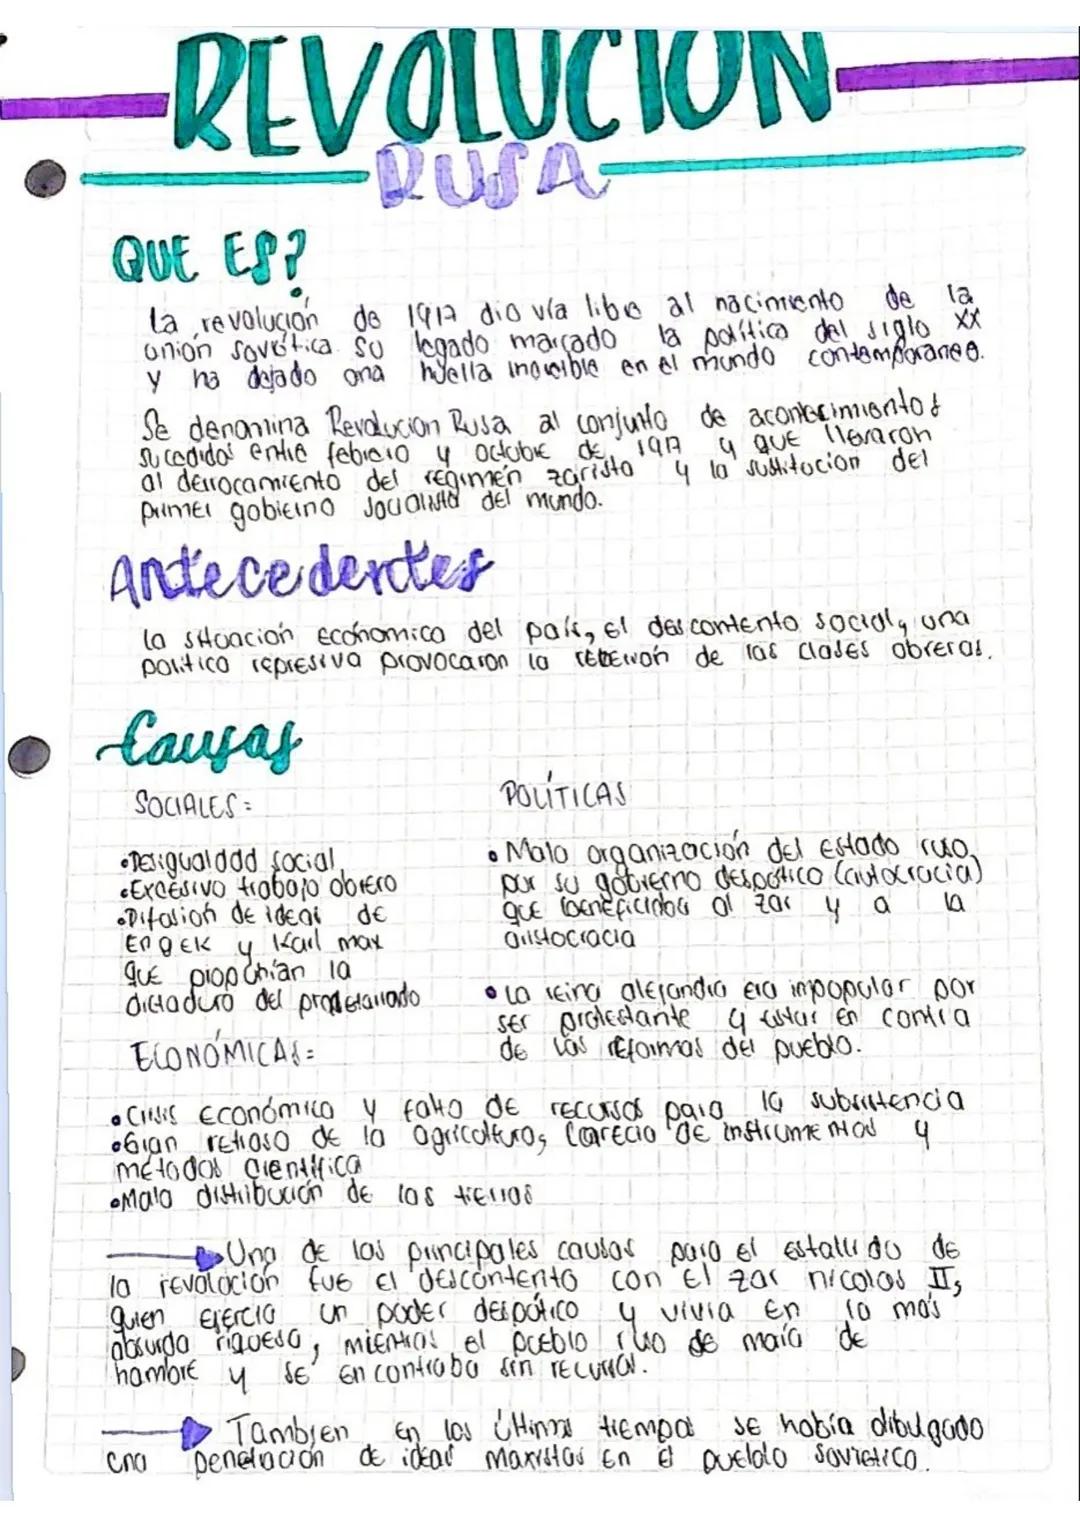 REVOLUCION
RUSA
QUE ES?
La revolución de 1917 dio vía libre al nacimiento de la
unión soviética. Su legado marcado la política del siglo XX
y ha dejado una huella increible en el mundo contemporaneo.
Se denomina Revolucion Rusa al conjunto de acontecimientos
sucedidos entre febrero y octubre de 1917 y que llevaron
al derrocamiento del regimén zarista y la sustitucion del
primer gobierno socialista del mundo.
Antecedentes
la situación económica del país, el descontento social y una
política represiva provocaron la rebelión de las clases obreras.
Causas
SOCIALES:
•Desigualdad social
•Excesivo trabajo obrero
•Difusión de ideas de
Engek y Karl max
que proponían la
dictadura del proletariado
POLÍTICAS
• Mala organización del estado ruso,
por su gobierno despótico (autocracia)
que beneficiaba al zar y a la
aristocracia
• La reina alejandra era impopular por
ser protestante y estar en contra
de las reformas del pueblo.
ECONÓMICAS:
•Crisis económica y falta de recursos para la subsistencia
•Gran retraso de la agricultura, carecia de instrumentos y
métodos cientifica
•Mala distribución de las tierras
Una de las principales causas para el estallido de
la revolución fue el descontento con el zar nicolas II,
quien ejercia un poder despótico y vivia en la más
absurda riquesa, mientras el pueblo ruso de moría de
hambre y se encontraba sin recursos.
Tambien en los últimos tiempos se había dibulgado
una penetración de ideas maxistas en el pueblo sovietico.